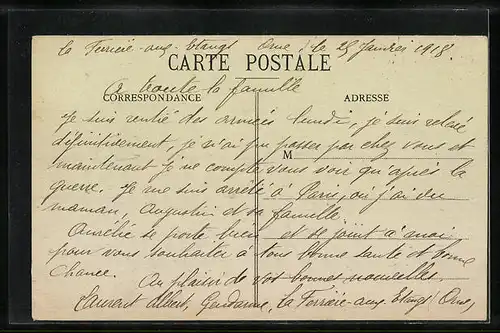 la Ferrière-aux-Etangs Orne, le 25 Janvier 1918.
CARTE POSTALE
à toute la famille
CORRESPONDANCE ADRESSE
Je suis rentré des armées lundi, je suis relevé
définitivement, je n'ai pu passer par chez vous et
M
maintenant je ne compte vous voir qu'après la
guerre. Je me suis arrêté à Paris, où j'ai vu
maman, Augustin et sa famille.
Aurélie se porte bien et se joint à moi
pour vous souhaiter à tous bonne santé et bonne
Chance.
Au plaisir de vos bonnes nouvelles.
Laurent Albert, Gendarme, la Ferrière-aux-Etangs (Orne)